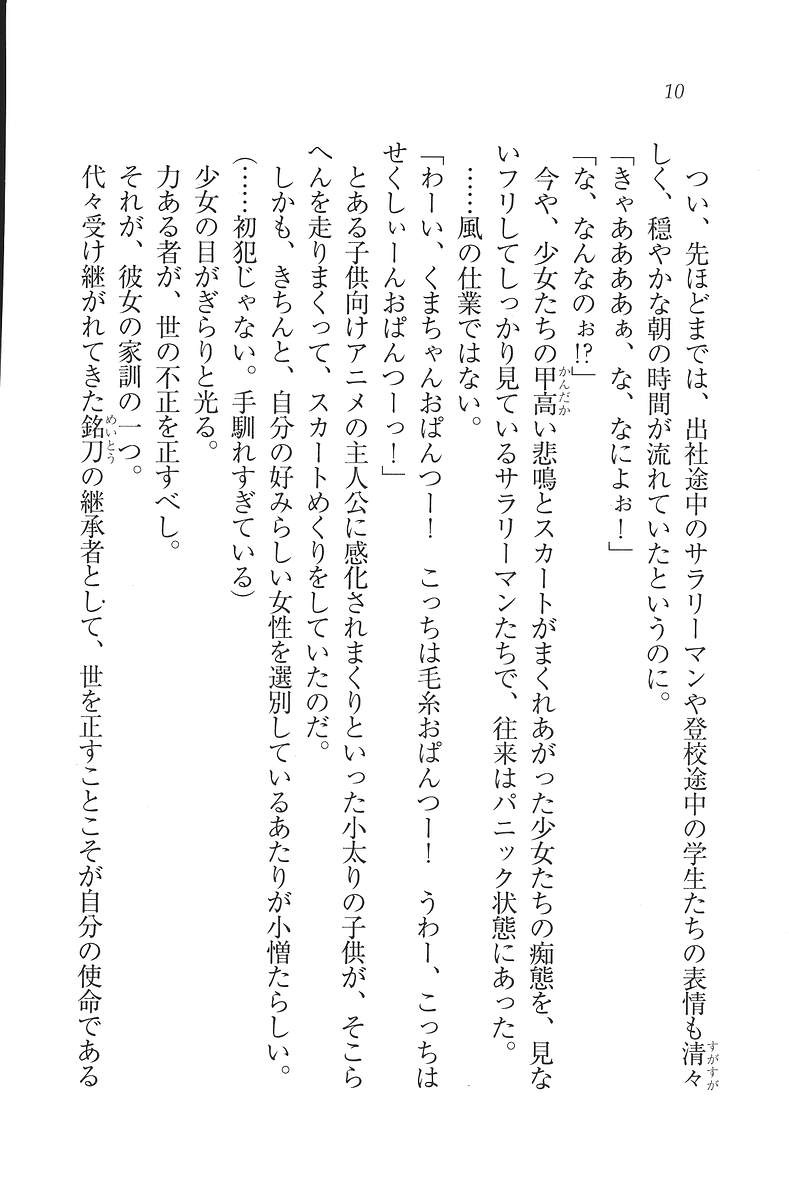 10
つい、先ほどまでは、出社途中のサラリーマンや登校途中の学生たちの表情も清々
すがすが
しく、穏やかな朝の時間が流れていたというのに。
「きゃああああぁ、な、なによぉ！」
「な、なんなのぉ!?」
今や、少女たちの甲高い悲鳴とスカートがまくれあがった少女たちの痴態を、見な
かんだか
いフリしてしっかり見ているサラリーマンたちで、往来はパニック状態にあった。
……風の仕業ではない。
「わーい、くまちゃんおぱんつー！　こっちは毛糸おぱんつー！　うわー、こっちは
せくしぃーんおぱんつーっ！」
とある子供向けアニメの主人公に感化されまくりといった小太りの子供が、そこら
へんを走りまくって、スカートめくりをしていたのだ。
しかも、きちんと、自分の好みらしい女性を選別しているあたりが小憎たらしい。
（……初犯じゃない。手馴れすぎている）
少女の目がぎらりと光る。
力ある者が、世の不正を正すべし。
それが、彼女の家訓の一つ。
代々受け継がれてきた銘刀の継承者として、世を正すことこそが自分の使命である
めいとう